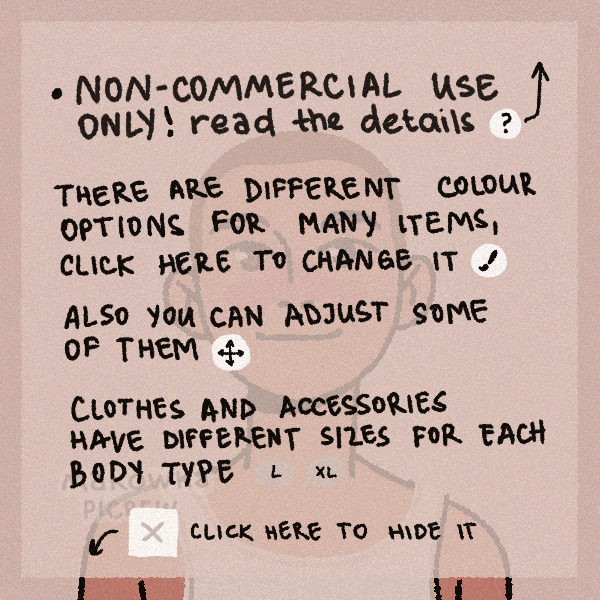 • NON-COMMERCIAL USE
ONLY! read the details ?
THERE ARE DIFFERENT COLOUR
OPTIONS FOR MANY ITEMS,
CLICK HERE TO CHANGE IT
ALSO YOU CAN ADJUST SOME
OF THEM
CLOTHES AND ACCESSORIES
HAVE DIFFERENT SIZES FOR EACH
BODY TYPE L XL
PICREW
CLICK HERE TO HIDE IT